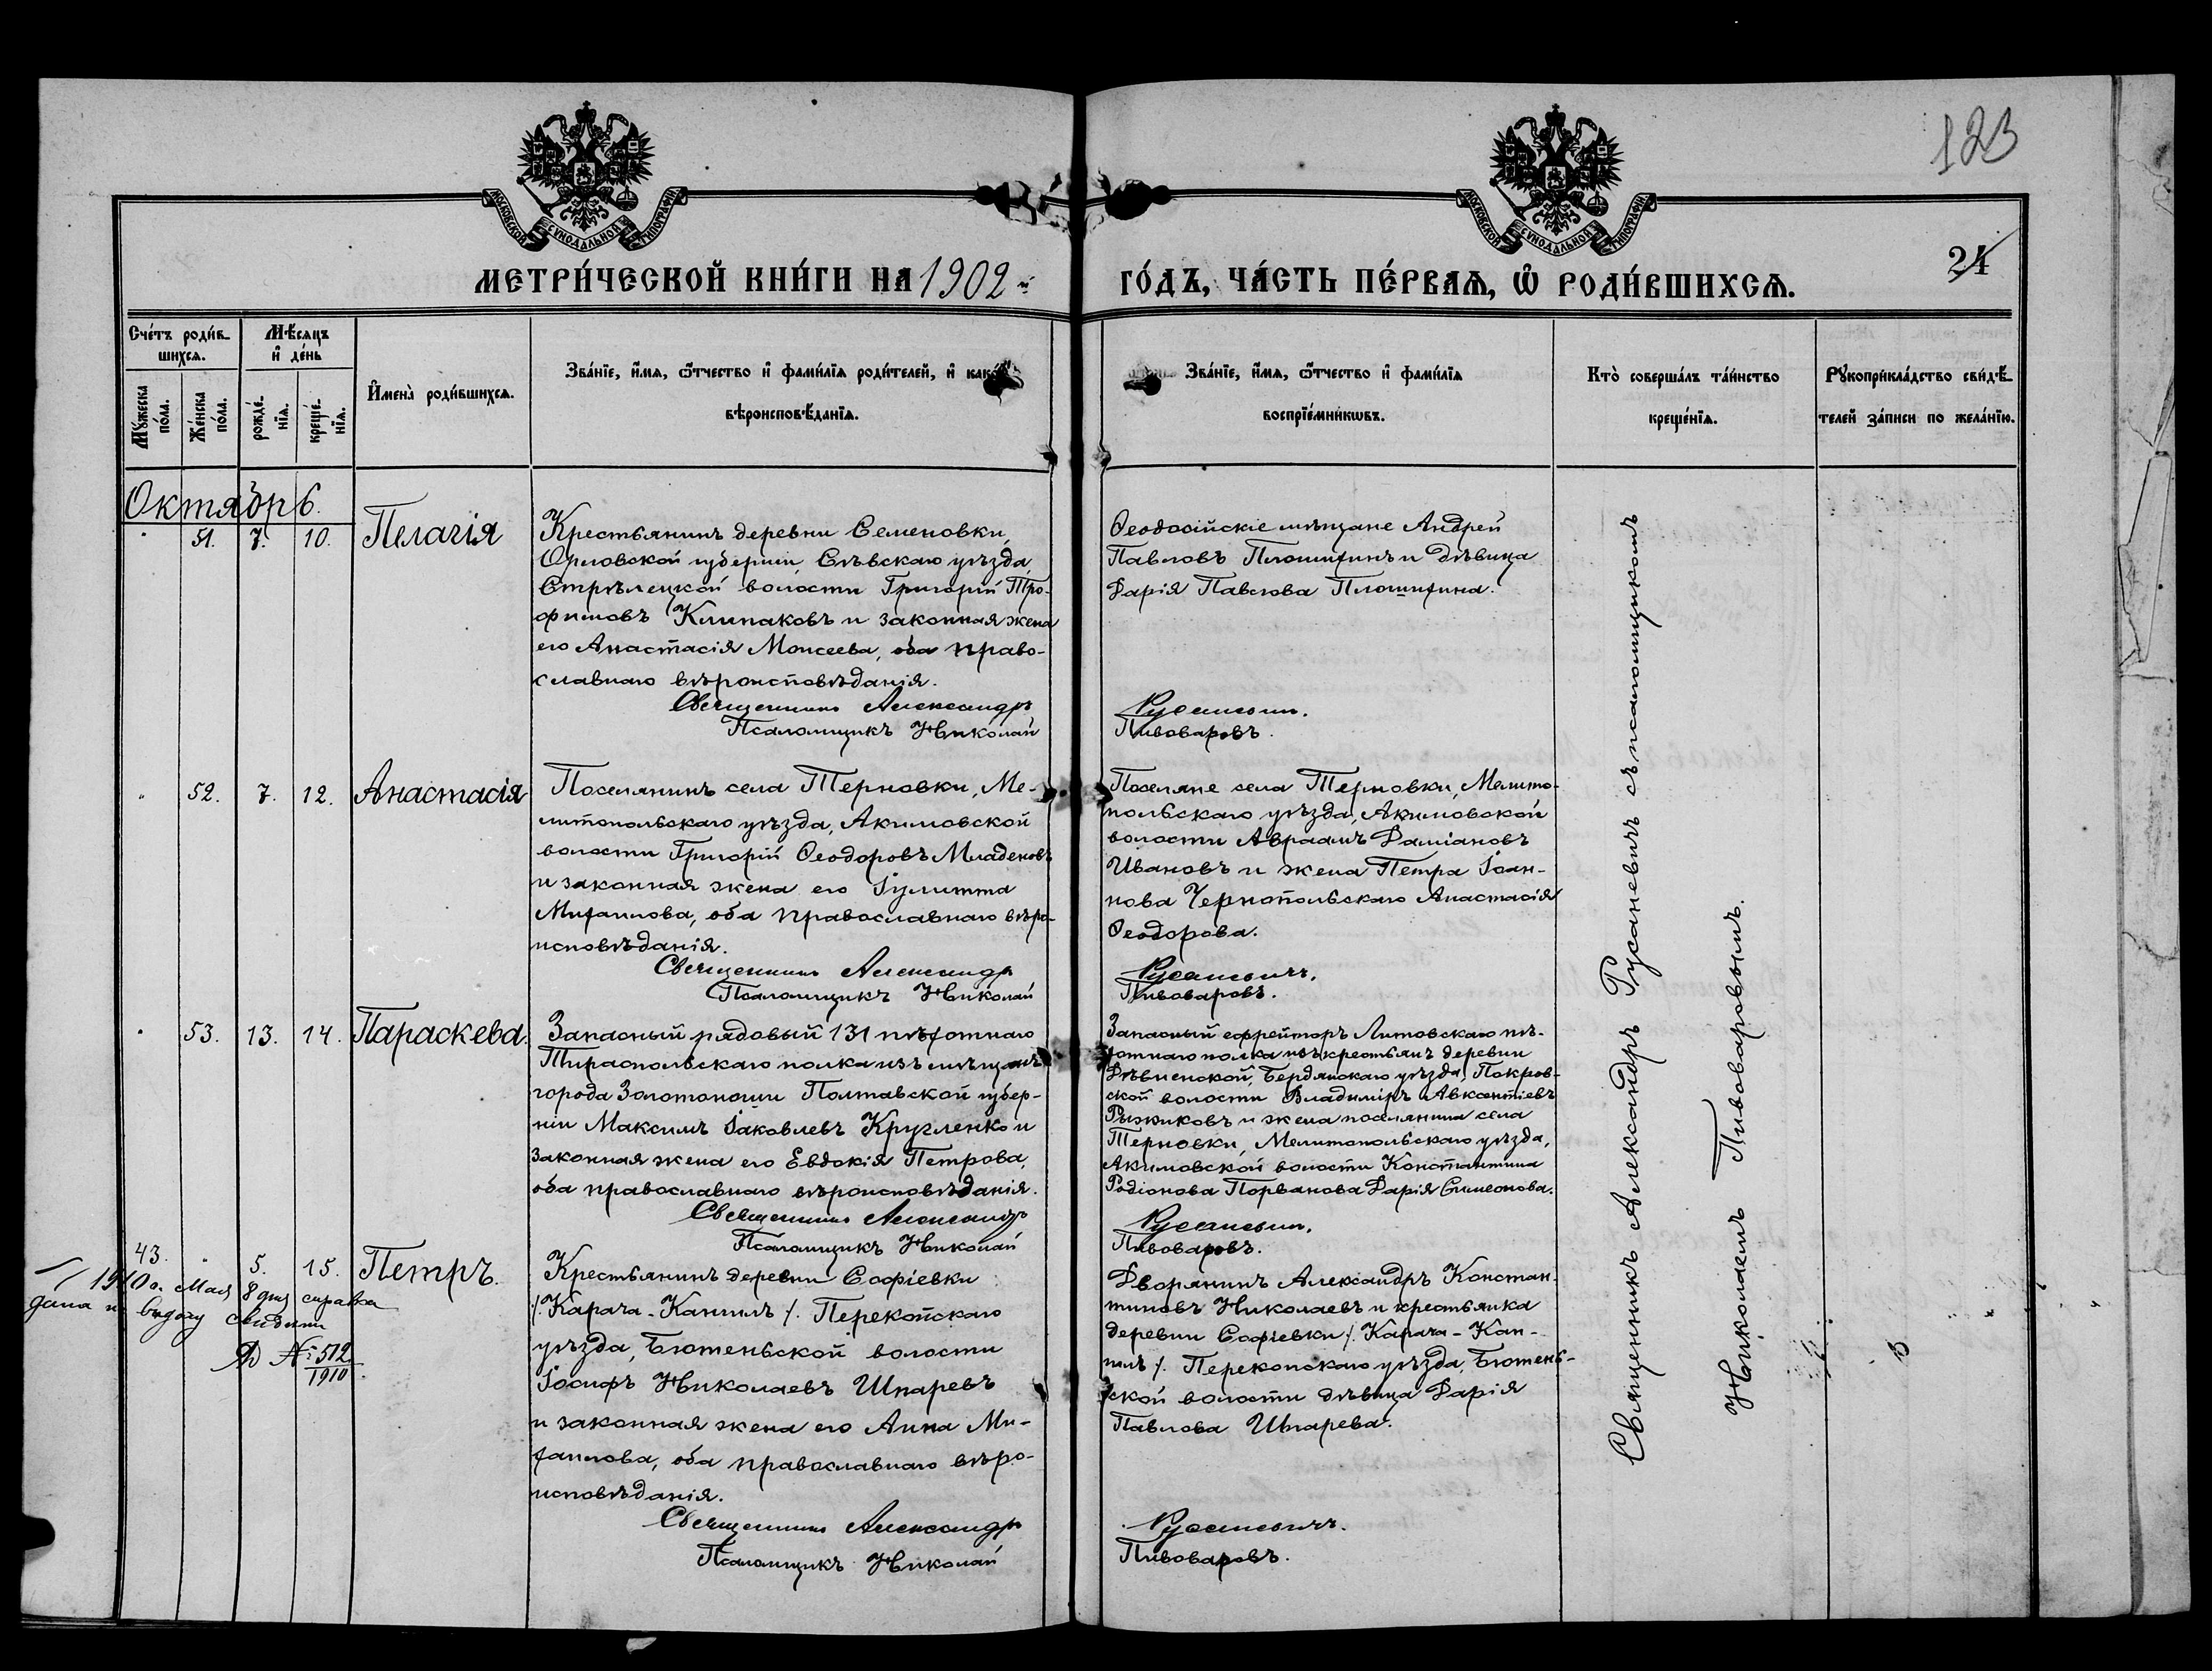 123
МОСКОВСКОЙ СѴНОДАЛЬНОЙ ТИПОГРАФІИ
МОСКОВСКОЙ СѴНОДАЛЬНОЙ ТИПОГРАФІИ
24
МЕТРИ́ЧЕСКОЙ КНИ́ГИ НА 1902 й
ГО́ДЪ, ЧА́СТЬ ПЕ́РВАѦ, Ѡ҆ РОДИ́ВШИХСѦ.
Сче́тъ роди́в-
шихсѧ.
Мѣ́сѧцъ
и҆ де́нь
Мꙋ́жеска
по́ла.
Же́нска
по́ла.
рожде́-
нїѧ.
креще́-
нїѧ.
И҆мена̀ роди́вшихсѧ.
Зва́нїе, и҆́мѧ, ѻ҆́тчество и҆ фами́лїѧ роди́телей, и҆ како́гѡ
вѣроисповѣ́данїѧ.
Зва́нїе, и҆́мѧ, ѻ҆́тчество и҆ фами́лїѧ
воспрїе́мникѡвъ.
Кто̀ соверша́лъ та́инство
креще́нїѧ.
Рꙋкоприкла́дство свидѣ́-
телей за́писи по жела́нїю.
Октябрь.
51. 7. 10. Пелагія
Крестьянинъ деревни Семеновки,
Орловской губерніи, Сѣвскаго уѣзда,
Стрѣлецкой волости Григорій Тро-
фимовъ Клипаковъ и законная жена
его Анастасія Моисеева, оба право-
славнаго вѣроисповѣданія.
Священникъ Александръ
Псаломщикъ Николай
Ѳеодосійскіе мѣщане Андрей
Павловъ Плошихинъ и дѣвица
Дарія Павлова Плошихина.
Русаневичъ.
Пивоваровъ.
52. 7. 12. Анастасія
Поселянинъ села Терновки, Ме-
литопольскаго уѣзда, Акимовской
волости Григорій Ѳеодоровъ Младеновъ
и законная жена его Іулитта
Михаилова, оба православнаго вѣро-
исповѣданія.
Священникъ Александръ
Псаломщикъ Николай
Поселяне села Терновки, Мелито-
польскаго уѣзда, Акимовской
волости Авраамъ Даміановъ
Ивановъ и жена Петра Іоан-
нова Чернопольскаго Анастасія
Ѳеодорова.
Русаневичъ.
Пивоваровъ.
53. 13. 14. Параскева.
Запасный рядовый 131 пѣхотнаго
Тираспольскаго полка изъ мѣщанъ
города Золотоноши Полтавской губер-
ніи Максимъ Іаковлевъ Кругленко и
законная жена его Евдокія Петрова,
оба православнаго вѣроисповѣданія.
Священникъ Александръ
Псаломщикъ Николай
Запасный ефрейторъ Литовскаго пѣ-
хотнаго полка изъ крестьянъ деревни
Дѣвненской, Бердянскаго уѣзда, Покров-
ской волости Владиміръ Авксентіевъ
Рыжиковъ и жена поселянина села
Терновки, Мелитопольскаго уѣзда,
Акимовской волости Константина
Родіонова Порванова Дарія Симеонова.
Русаневичъ.
Пивоваровъ.
43. 5. 15. Петръ.
1910 г. Мая 8 дня справка
дана
№ 512
1910
Крестьянинъ деревни Софіевки
/. Карача-Кангилъ /. Перекопскаго
уѣзда, Бютеньской волости
Іосифъ Николаевъ Шпаревъ
и законная жена его Анна Ми-
хаилова, оба православнаго вѣро-
исповѣданія.
Священникъ Александръ
Псаломщикъ Николай
Дворянинъ Александръ Констан-
тиновъ Николаевъ и крестьянка
деревни Софіевки /. Карача-Кан-
гилъ /. Перекопскаго уѣзда, Бютень-
ской волости дѣвица Дарія
Павлова Шпарева.
Русаневичъ.
Пивоваровъ.
Священникъ Александръ Русаневичъ съ псаломщикомъ
Николаемъ Пивоваровымъ.